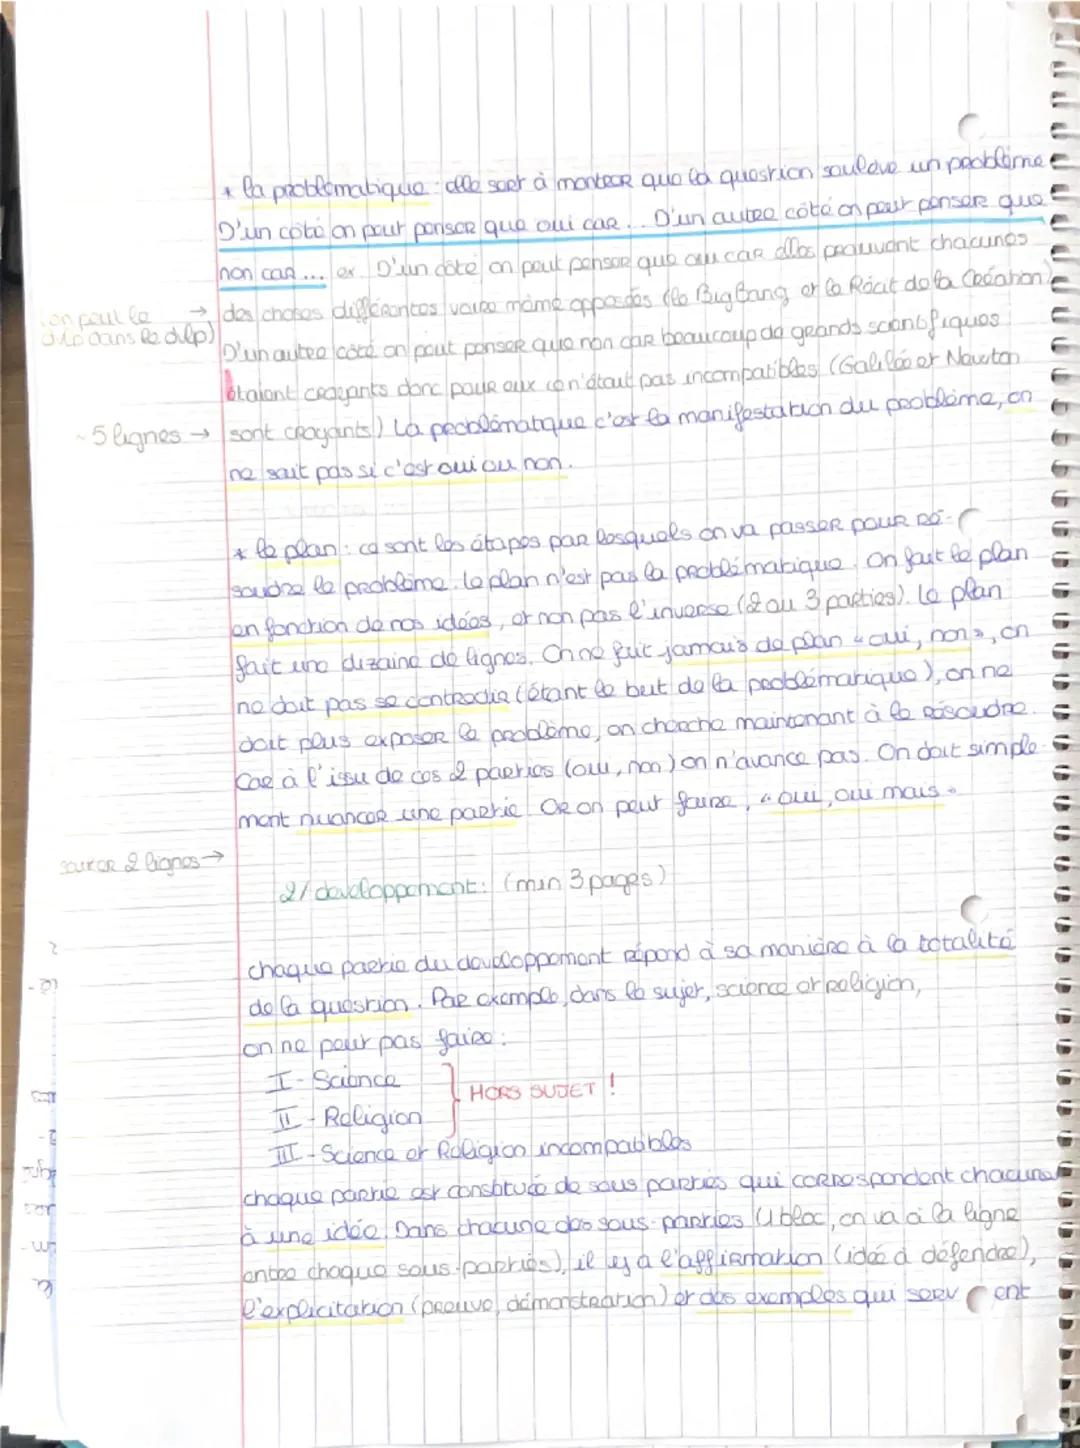 * la problématique : elle sert à montrer que la question soulève un problème
D'un côté on peut penser que oui car ... D'un autre côté on peut penser que
non car ... ex D'un côté on peut penser que oui car elles prouvent chacunes
(on peut le → des choses différentes voire même opposées (le Big Bang et le Récit de la Création)
dans le dvlp) D'un autre côté on peut penser que non car beaucoup de grands scientifiques
étaient croyants donc pour eux ce n'était pas incompatibles (Galilée et Newton
~ 5 lignes → sont croyants) La problématique c'est la manifestation du problème, on
ne sait pas si c'est oui ou non.
* le plan : ce sont les étapes par lesquels on va passer pour ré-
soudre le problème. le plan n'est pas la problématique. On fait le plan
en fonction de nos idées, et non pas l'inverse (2 ou 3 parties). Le plan
fait une dizaine de lignes. On ne fait jamais de plan « oui, non », on
ne doit pas se contredire (étant le but de la problématique), on ne
doit plus exposer le problème, on cherche maintenant à le résoudre.
Car à l'issu de ces 2 parties (oui, non) on n'avance pas. On doit simple-
ment nuancer une partie. Or on peut faire, « oui, oui mais »
sauter 2 lignes →
2/ développement : (min 3 pages)
chaque partie du développement répond à sa manière à la totalité
de la question. Par exemple, dans le sujet, science et religion,
on ne peut pas faire :
I - Science
HORS SUJET !
II - Religion
III - Science et Religion incompatibles
chaque partie est constituée de sous parties qui correspondent chacune
à une idée. Dans chacune des sous-parties (1 bloc, on va à la ligne
entre chaque sous-parties), il y a l'affirmation (idée à défendre),
l'explicitation (preuve, démonstration) et des exemples qui serv ent